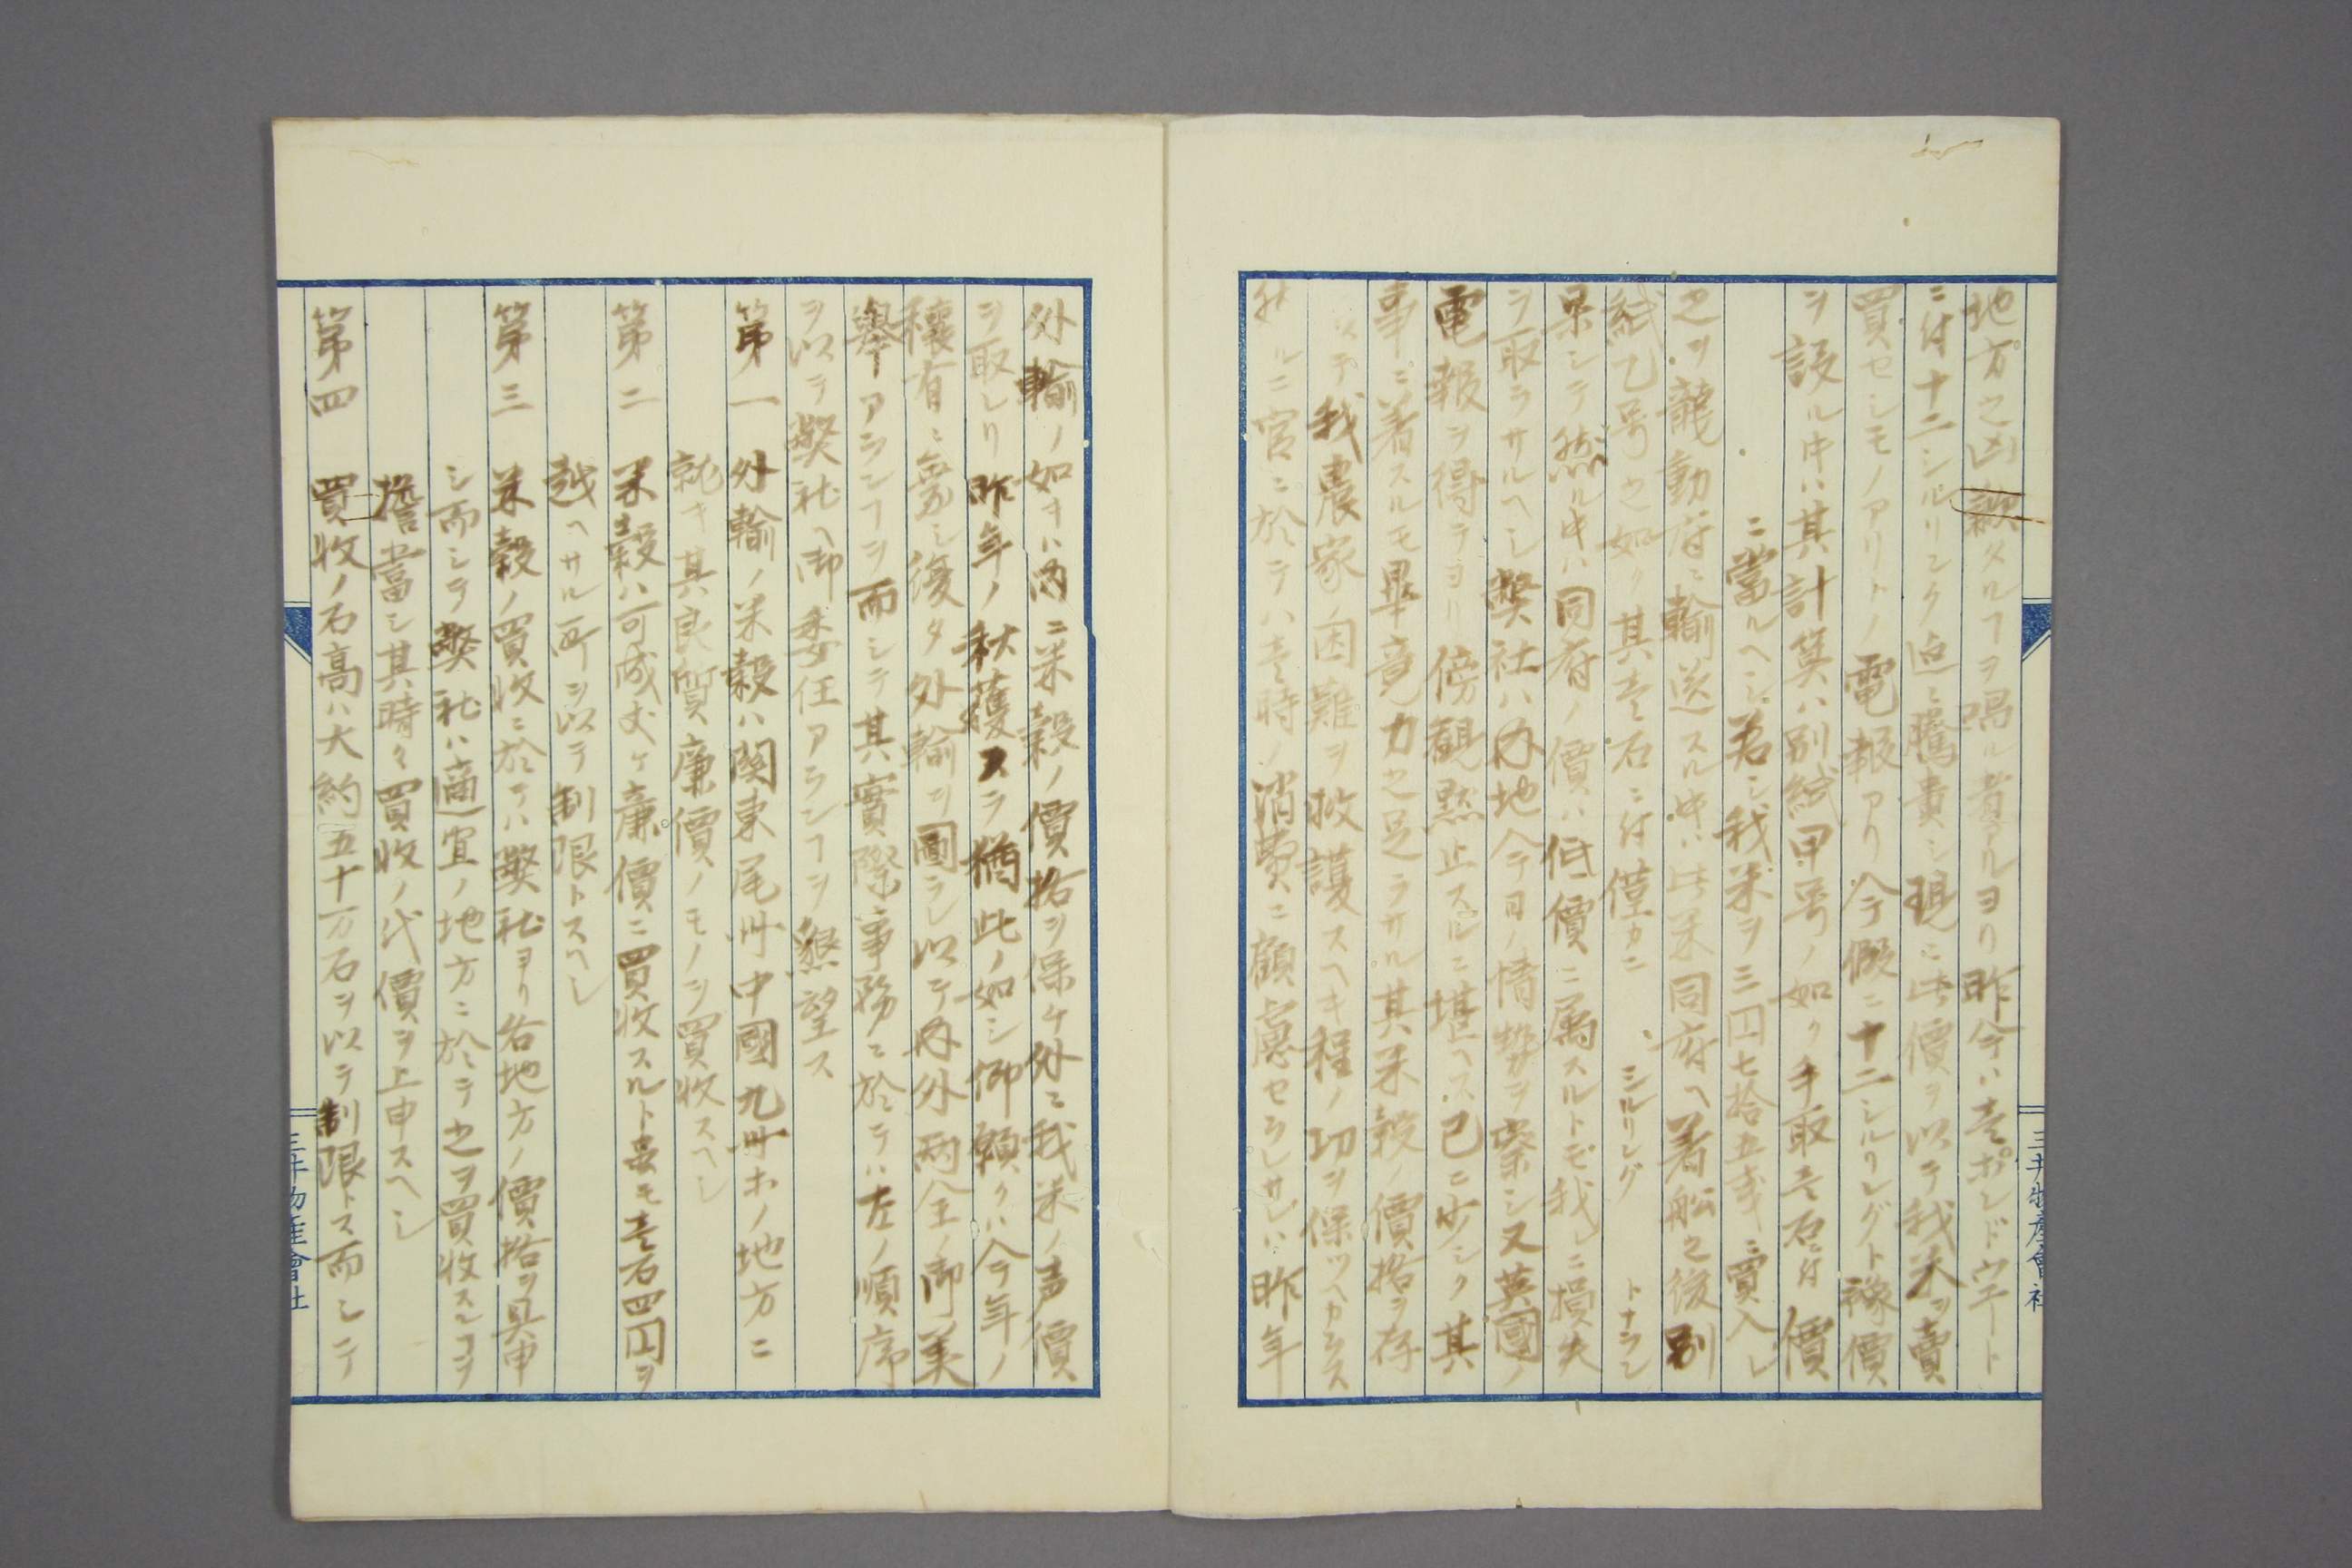 地方之凶歉タルヿヲ唱ル者アルヨリ昨今ハ壱ポンドウエート
ニ付十二シルリング迄ニ騰貴シ現ニ此價ヲ以テ我米ヲ賣
買セシモノアリトノ電報アリ今假ニ十二シルリングト豫價
ヲ設ル时ハ其計算ハ別紙甲号ノ如ク手取壱石ニ付價
ニ當ルヘシ若シ我米ヲ三円七拾五戔ニ買入レ
之ヲ龍動府ニ輸送スル时ハ此米同府ヘ着舩之後別
紙乙号之如ク其壱石ニ付僅カニ シルリング トナラン
果シテ然ル时ハ同府ノ價ハ低價ニ属スルトモ我ニ損失
ヲ取ラサルヘシ弊社ハ内地今日ノ情勢ヲ察シ又英國ノ
電報ヲ得テヨリ傍観黙止スルニ堪ヘス已ニ少シク其
事ニ着スルモ畢竟力之足ラサル其米穀ノ價格ヲ存
シテ我農家ノ困難ヲ救護スヘキ程ノ功ヲ保ツヘカラス
然ルニ官ニ於テハ壱時ノ消費ニ顧慮セラレサレハ昨年
外輸ノ如キハ内ニ米穀ノ價格ヲ保ケ外ニ我米ノ声價
ヲ取レリ昨年ノ秋獲スラ猶此ノ如シ仰願クハ今年ノ
穰有ニ 復タ外輸ヲ圖ラレ以テ内外両全ノ御美
舉アランヿヲ而シテ其實際事務ニ於テハ左ノ順序
ヲ以テ弊社ヘ御委任アランヿヲ懇望ス
第一 外輸ノ米穀ハ関東尾州中國九州ホノ地方ニ
就キ其良質廉價ノモノヲ買收スヘシ
第二 米穀ハ可成丈ケ廉價ニ買收スルト雖モ壱石四円ヲ
越ヘサル所ヲ以テ制限トスヘシ
第三 米穀ノ買收ニ於テハ弊社ヨリ各地方ノ價格ヲ具申
シ而シテ弊社ハ適宜ノ地方ニ於テ之ヲ買收スルヿヲ
擔當シ其時々買收ノ代價ヲ上申スヘシ
第四 買收ノ石高ハ大約五十万石ヲ以テ制限トス而シテ
三井物産會社
三井物産會社